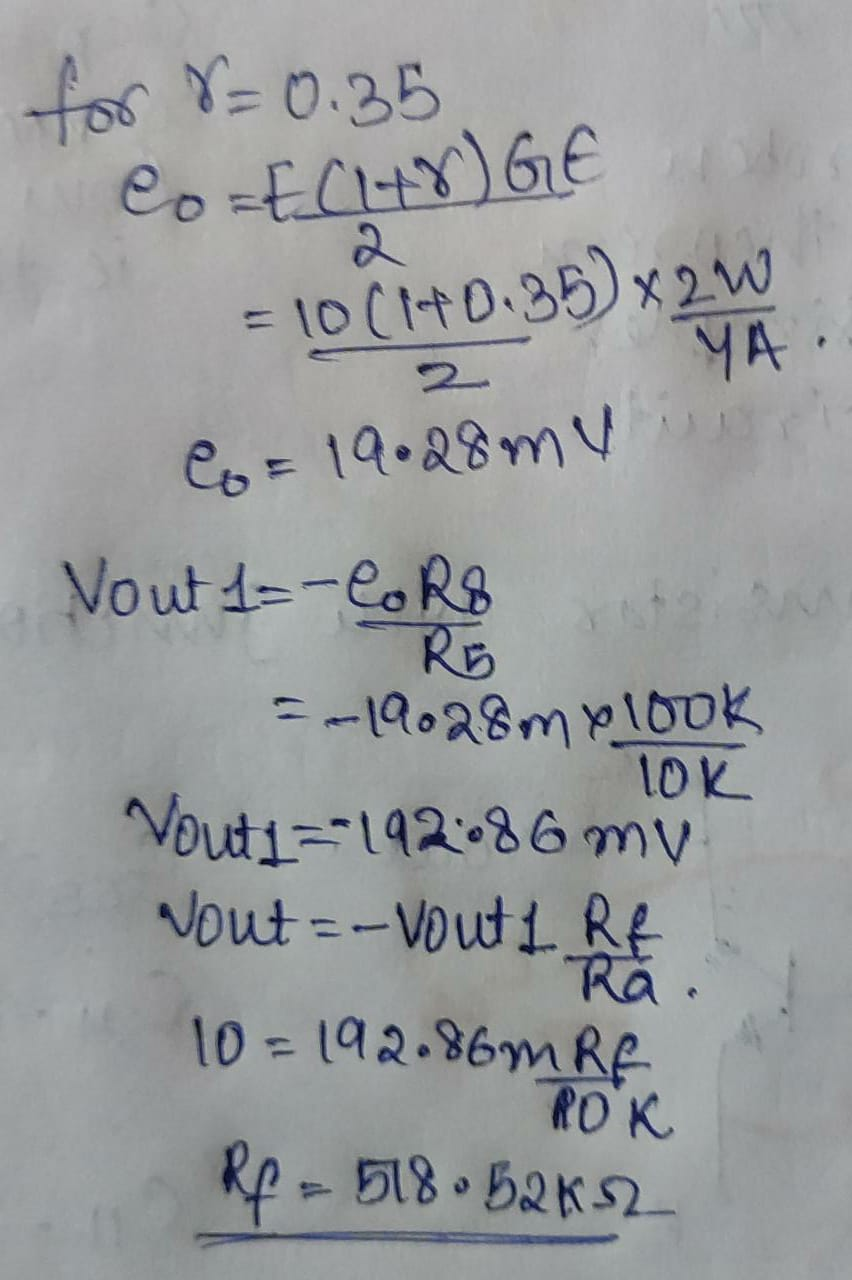 for γ = 0.35
e₀ = E(1+γ)GE
2
= 10(1+0.35) × 2W
2 YA .
e₀ = 19.28mV
Vout1 = -e₀R8
R5
= -19.28m × 100K
10K
Vout1 = -192.86 mV
Vout = -Vout1 Rf
Ra .
10 = 192.86m Rf
10K
Rf = 518.52KΩ